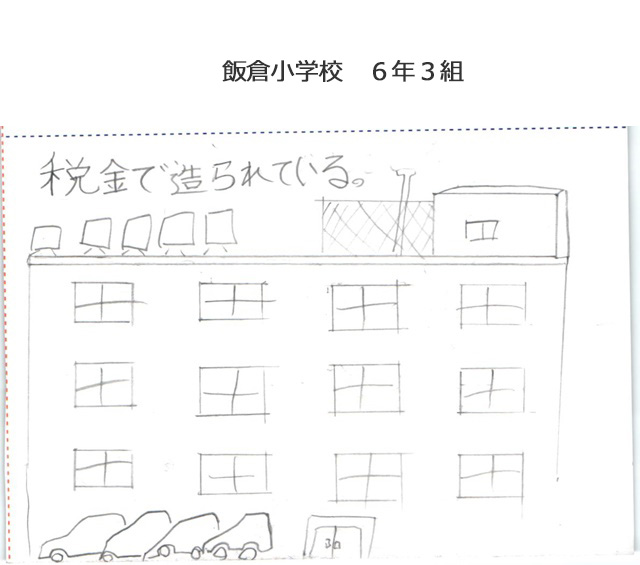 飯倉小学校　６年３組
税金で造られている。